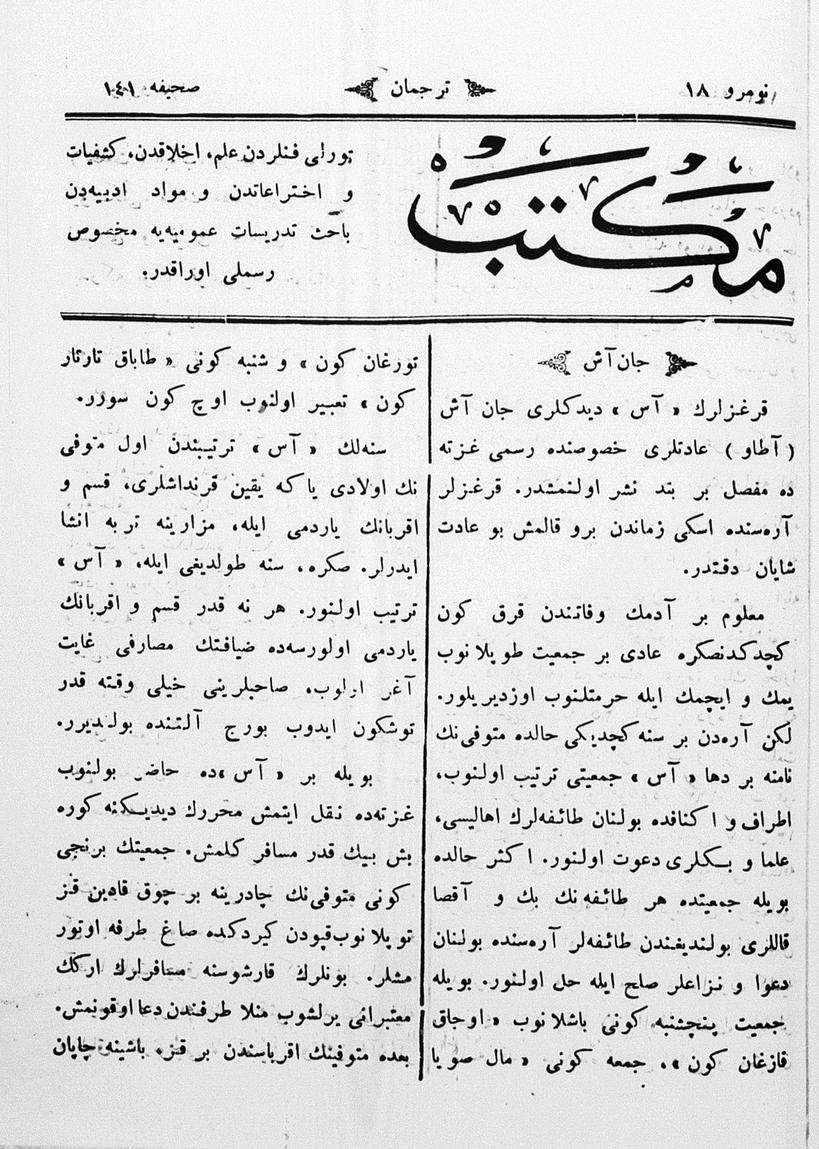 نومرو ۱۸
ترجمان
صحیفه ۱٤۱
مكتب
تورلی فنلردن علم، اخلاقدن، كشفیات
و اختراعاتدن و مواد ادبیه‌دن
باحث تدریسات عمومیه‌یه مخصوص
رسملی اوراقدر.
جان آش
قرغزلرك « آس » دیدكلری جان آش
( آطاو ) عادتلری خصوصنده رسمی غزته
ده مفصل بر بند نشر اولنمشدر. قرغزلر
آره‌سنده اسكی زماندن برو قالمش بو عادت
شایان دقتدر.
معلوم بر آدمك وفاتندن قرق كون
كچدكدنصكره عادی بر جمعیت طوپلانوب
یمك و ایچمك ایله حرمتلنوب اوزدیریلور.
لكن آره‌دن بر سنه كچدیكی حالده متوفی‌نك
نامنه بر دها « آس » جمعیتی ترتیب اولنوب،
اطراف و اكنافده بولنان طائفه‌لرك اهالیسی،
علما و بكلری دعوت اولنور. اكثر حالده
بویله جمعیتده هر طائفه‌نك بك و آقصا
قاللری بولندیغندن طائفه‌لر آره‌سنده بولنان
دعوا و نزاعلر صلح ایله حل اولنور. بویله
جمعیت پنچشنبه كونی باشلانوب « اوجاق
قازغان كون »، جمعه كونی « مال صویا
تورغان كون » و شنبه كونی « طاباق تارتار
كون » تعبیر اولنوب اوچ كون سورر.
سنه‌لك « آس » ترتیبندن اول متوفی
نك اولادی یا كه یقین قرنداشلری، قسم و
اقربانك یاردمی ایله، مزارینه تربه انشا
ایدرلر. صكره، سنه طولدیغی ایله، « آس »
ترتیب اولنور. هر نه قدر قسم و اقربانك
یاردمی اولورسه‌ده ضیافتك مصارفی غایت
آغر اولوب، صاحبلرینی خیلی وقته قدر
توشكون ایدوب بورج آلتنده بولدیرر.
بویله بر « آس »ده حاضر بولنوب
غزته‌ده نقل ایتمش محررك دیدیكنه كوره
بش بیك قدر مسافر كلمش. جمعیتك برنجی
كونی متوفی‌نك چادرینه بر چوق قادین قز
توپلانوب‌قپودن كیردكده صاغ طرفه اوتور
مشلر. بونلرك قارشوسنه مسافرلرك اركك
معتبرانی یرلشوب منلا طرفندن دعا اوقونمش.
بعده متوفینك اقرباسندن بر قز، باشینه چاپان